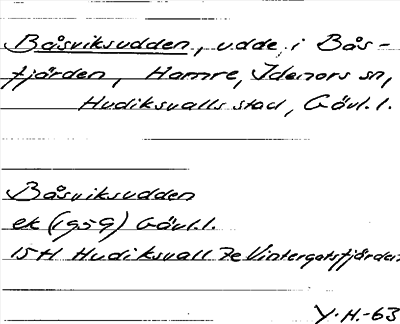 Båsviksudden, udde, i Bås-
fjärden, Hamre, Idenors sn,
Hudiksvalls stad, Gävl. l.
Båsviksudden
ek (1959) Gävl. l.
15 H Hudiksvall 7e Vintergatsfjärden
Y. H. -63